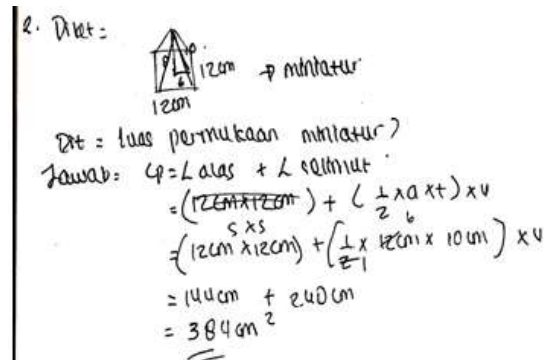 2. Diket =
8
6
12cm → miniatur
12cm
Dit = luas permukaan miniatur?
Jawab = LP = L alas + L selimut
= (12cm x 12cm) + (1/2 x a x t) x 4
s x s
6
= (12cm x 12cm) + (1/2 x 12cm x 10cm) x 4
1
= 144cm + 240cm
= 384cm²